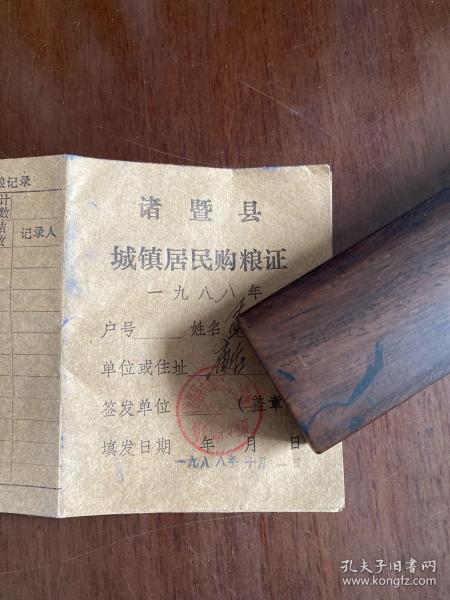 粮记录
计数
结数
记录人
诸暨县
城镇居民购粮证
一九八八年
户号 姓名
单位或住址
签发单位 （盖章
填发日期 年 月 日
一九八八年十月二日
孔夫子旧书网
www.kongfz.com